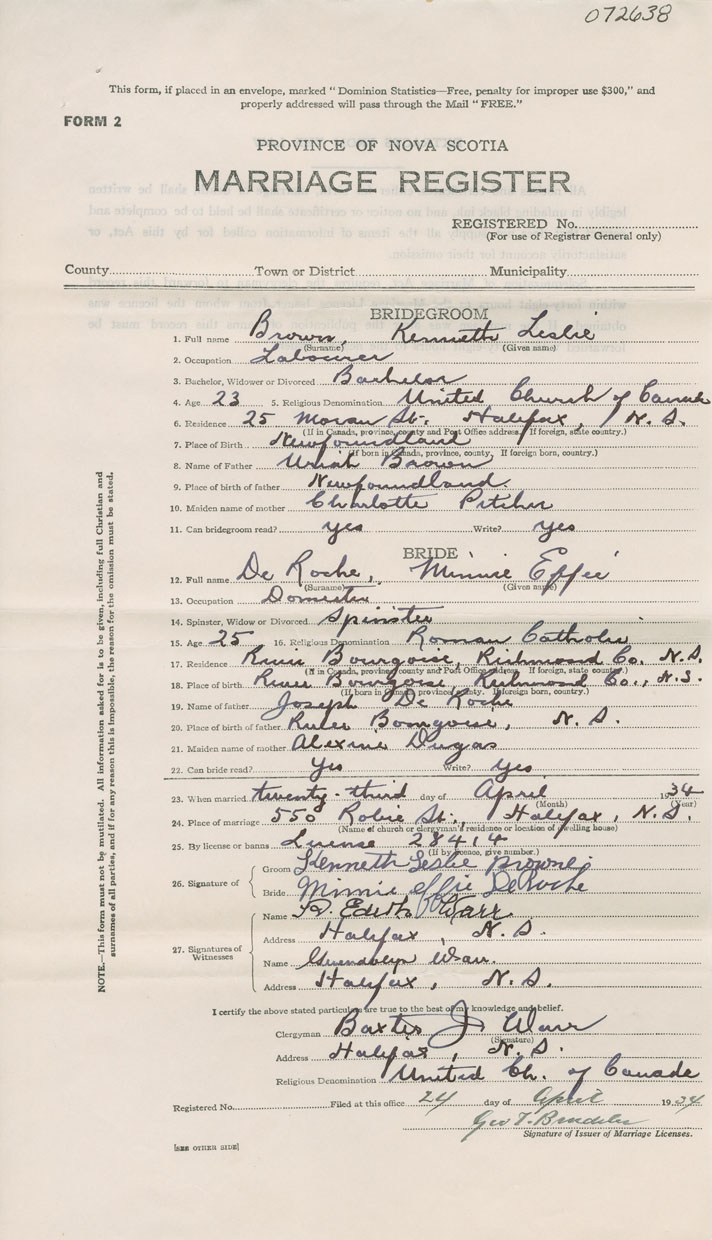 072638
This form, if placed in an envelope, marked "Dominion Statistics—Free, penalty for improper use $300," and
properly addressed will pass through the Mail "FREE."
FORM 2
PROVINCE OF NOVA SCOTIA
MARRIAGE REGISTER
REGISTERED No.
(For use of Registrar General only)
County Town or District Municipality
BRIDEGROOM
1. Full name Brown, Kenneth Leslie
(Surname) (Given name)
2. Occupation Labourer
3. Bachelor, Widower or Divorced Bachelor
4. Age 23 5. Religious Denomination United Church of Canada
6. Residence 25 Moran St. Halifax, N. S.
(If in Canada, province, county and Post Office address. If foreign, state country.)
7. Place of Birth Newfoundland
(If born in Canada, province, county, If foreign born, country.)
8. Name of Father Uriah Brown
9. Place of birth of father Newfoundland
10. Maiden name of mother Charlotte Pitcher
11. Can bridegroom read? yes Write? yes
BRIDE
12. Full name De Roche, Minnie Effie
(Surname) (Given name)
13. Occupation Domestic
14. Spinster, Widow or Divorced Spinster
15. Age 25 16. Religious Denomination Roman Catholic
17. Residence River Bourgoise, Richmond Co. N. S.
(If in Canada, province, county and Post Office address. If foreign, state country.)
18. Place of birth River Bourgoise, Richmond Co., N. S.
(If born in Canada, province, county. If foreign born, country.)
19. Name of father Joseph De Roche
20. Place of birth of father River Bourgoise, N. S.
21. Maiden name of mother Alexine Dugas
22. Can bride read? Yes Write? Yes
23. When married twenty-third day of April 1934
(Month) (Year)
24. Place of marriage 550 Robie St., Halifax, N. S.
(Name of church or clergyman's residence or location of dwelling house)
25. By license or banns License 28414
(If by licence, give number.)
26. Signature of Groom Kenneth Leslie Browne
Bride Minnie Effie DeRoche
27. Signatures of Witnesses Name Edith Warr
Address Halifax, N. S.
Name Gwendolyn Warr.
Address Halifax, N. S.
I certify the above stated particulars are true to the best of my knowledge and belief.
Clergyman Baxter J. Warr
(Signature)
Address Halifax, N. S.
Religious Denomination United Ch. of Canada
Registered No. Filed at this office 24 day of April 1934
Geo T.
Signature of Issuer of Marriage Licenses.
[SEE OTHER SIDE]
NOTE.—This form must not be mutilated. All information asked for is to be given, including full Christian and
surnames of all parties, and if for any reason this is impossible, the reason for the omission must be stated.